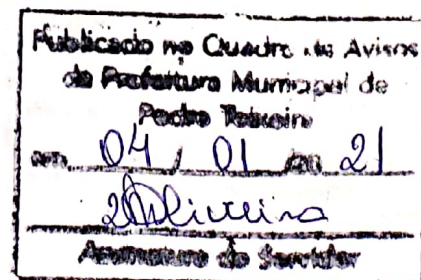 Publicado no Quadro de Avisos
da Prefeitura Municipal de
Pedro Teixeira
em, 04 / 01 / 21
Oliveira
Assinatura do Servidor